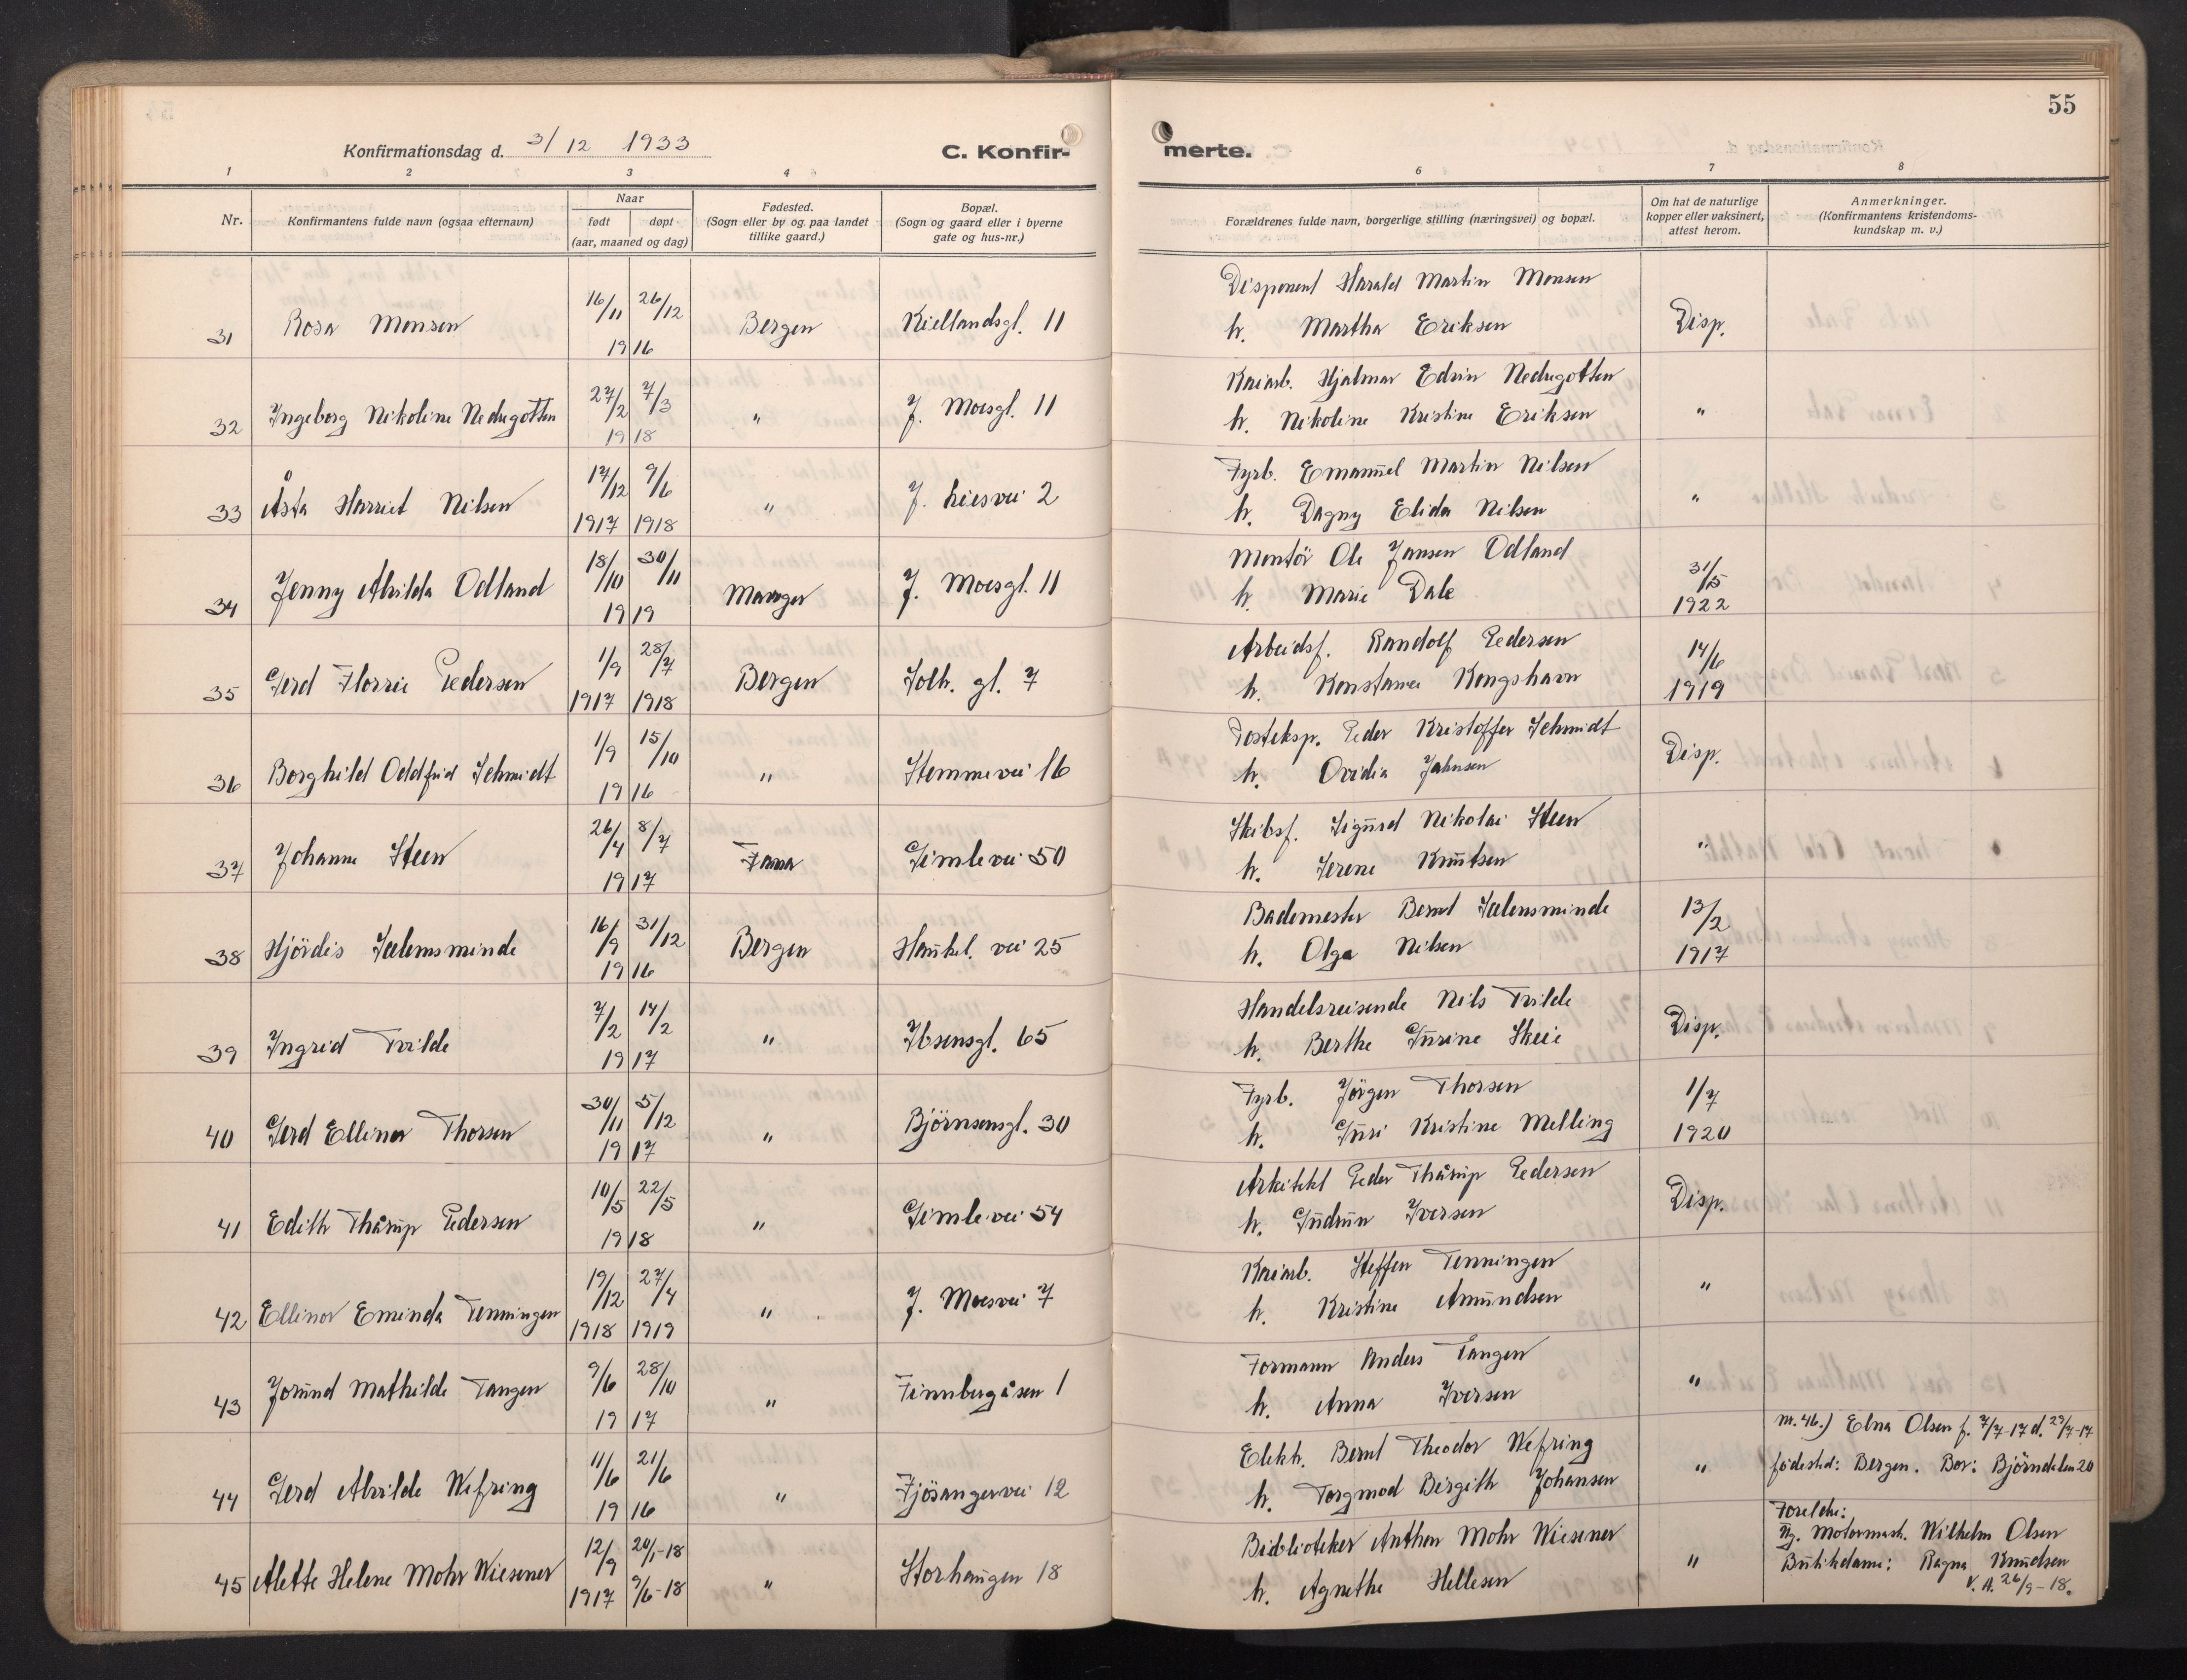 55
Konfirmationsdag d. 3/12 1933
C. Konfir-
merte.
1 2 3 4 6 7 8
Nr.
Konfirmantens fulde navn (ogsaa efternavn)
Naar
født døpt
(aar, maaned og dag)
Fødested.
(Sogn eller by og paa landet
tillike gaard.)
Bopæl.
(Sogn og gaard eller i byerne
gate og hus-nr.)
Forældrenes fulde navn, borgerlige stilling (næringsvei) og bopæl.
Om hat de naturlige
kopper eller vaksinert,
attest herom.
Anmerkninger.
(Konfirmantens kristendoms-
kundskap m. v.)
31 Rosa Monsen 16/11 26/12 1916 Bergen Kiellandsgt. 11 Disponent Harald Martin Monsen
h. Martha Eriksen Disp.
32 Ingeborg Nikoline Nedregotten 27/2 7/3 1918 " J. Moesgt. 11 Kaiarb. Hjalmar Edvin Nedregotten
h. Nikoline Kristine Eriksen "
33 Åsta Harriet Nilsen 17/12 1917 9/6 1918 " J. Liesvei 2 Fyrb. Emanuel Martin Nilsen
h. Dagny Elida Nilsen "
34 Jenny Alvilda Odland 18/10 30/11 1919 Manger J. Moesgt. 11 Montör Ole Jansen Odland
h. Marie Dale 31/5 1922
35 Gerd Florrie Pedersen 1/9 1917 28/7 1918 Bergen Solh. gt. 7 Arbeidsf. Randolf Pedersen
h. Konstance Kongshavn 14/6 1919
36 Borghild Oddfrid Schmidt 1/9 15/10 1916 " Stemmevei 16 Posteksp. Peder Kristoffer Schmidt
h. Ovidia Jahnsen Disp.
37 Johanne Steen 26/4 8/7 1917 Fana Gimlevei 50 Skibsf. Sigurd Nikolai Steen
h. Serene Knutsen "
38 Hjördis Salemsminde 16/9 31/12 1916 Bergen Haukel. vei 25 Bademester Bernt Salemsminde
h. Olga Nilsen 13/2 1917
39 Ingrid Tvilde 7/2 14/2 1917 " Ibsensgt. 65 Handelsreisende Nils Tvilde
h. Berthe Gurine Skeie Disp.
40 Gerd Ellinor Thorsen 30/11 5/12 1917 " Björnsensgt. 30 Fyrb. Jörgen Thorsen
h. Guri Kristine Melling 1/7 1920
41 Edith Thårup Pedersen 10/5 22/5 1918 " Gimlevei 54 Arkitekt Peder Thårup Pedersen
h. Gudrun Iversen Disp.
42 Ellinor Eminda Tenningen 19/12 1918 27/4 1919 " J. Moesvei 7 Kaiarb. Steffen Tenningen
h. Kristine Amundsen "
43 Jorund Mathilde Tangen 9/6 28/10 1917 " Finnbergåsen 1 Formann Anders Tangen
h. Anna Iversen "
44 Gerd Alvilde Wefring 11/6 21/6 1916 " Fjösangervei 12 Elektr. Bernt Theodor Wefring
h. Torgmod Birgith Johansen "
45 Alette Helene Mohr Wiesener 12/9 1917 20/1-18 9/6-18 " Storhaugen 18 Biblioteker Anthon Mohr Wiesener
h. Agnethe Hellesen "
nr. 46.) Elna Olsen f. 7/7-17 d. 29/7-17
födested: Bergen. Bor: Björndalen 20
Foreldre:
Ug. Motormask. Wilhelm Olsen
Butikdame: Ragna Knudsen
V. A. 26/9-18.